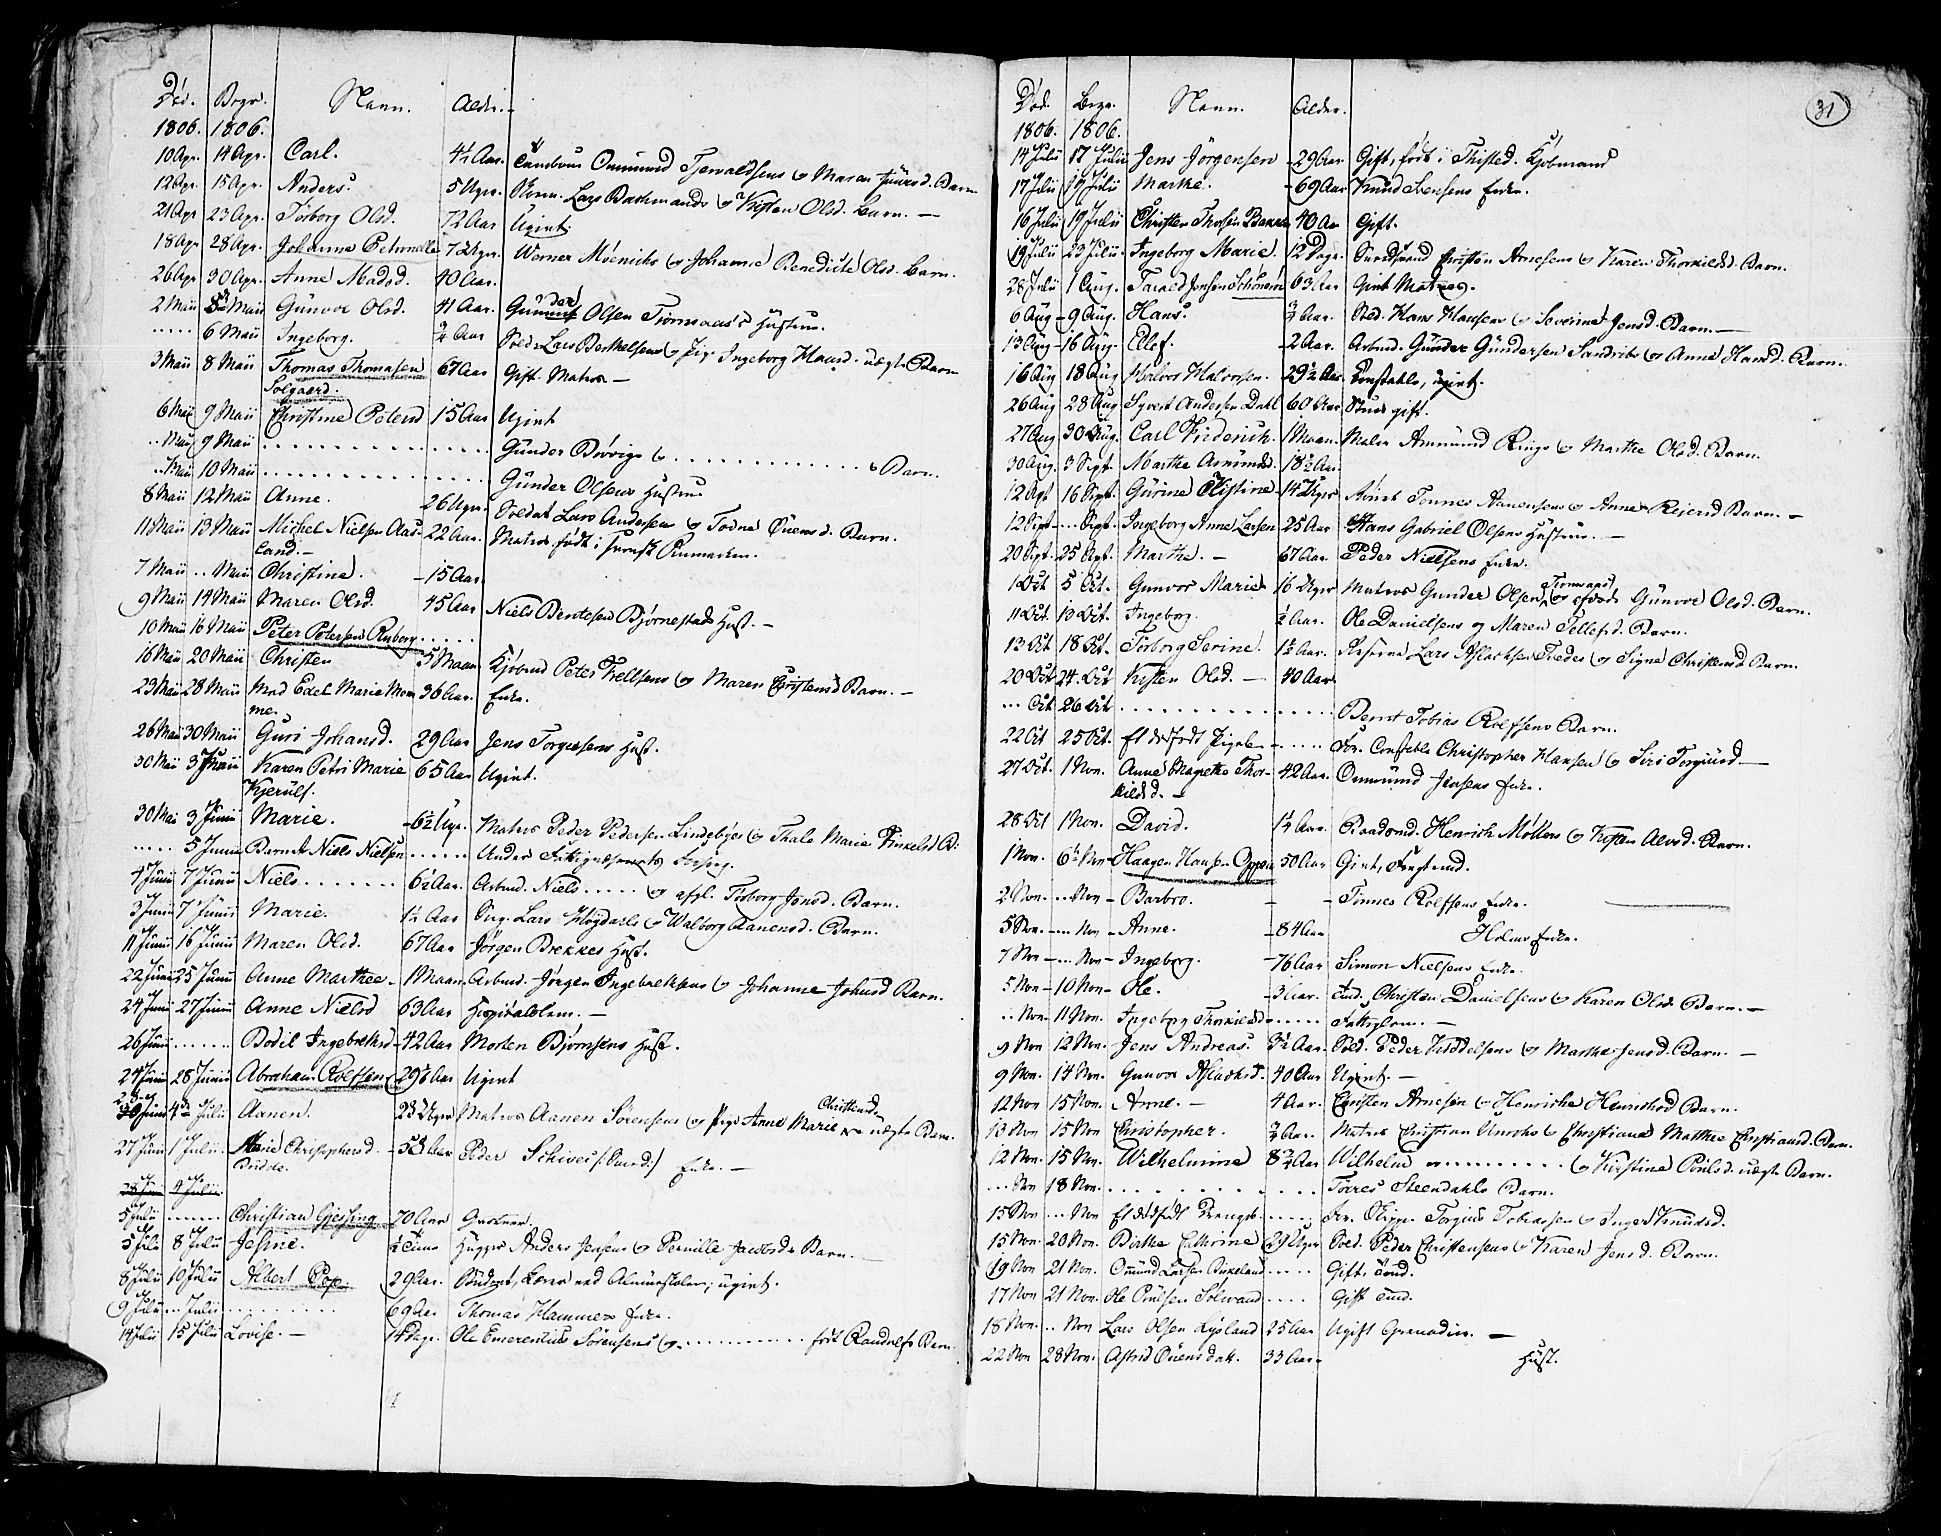 Død. Begr. Navn. Alder.
1806. 1806.
10 Apr. 14 Apr. Carl. 4½ Aar. Ommund Tjervaldsens og Maren Juursd. Barn
12 Apr. 15 Apr. Anders. 5 Uger. Lars Bachmands og Kisten Olsd. Barn. —
21 Apr 23 Apr. Torborg Olsd. 72 Aar Ugivt.
18 Apr 28 Apr. Johanne Petronelle 7 Uger. Werner Möenichs og Johanne Benedicte Olsd. Barn.
26 Apr 30 Apr. Anne Madsd. 40 Aar.
2 Maii Maii Gunvor Olsd. 41 Aar. Gunder Olsen Tromaas's Hustrue.
..... 6 Maii Ingeborg. ¾ Aar Sold. Lars Berthelsens og Pige Ingeborg Hansd. uægte Barn
3 Maii 8 Maii Thomas Thomasen 67 Aar Gift. Matros —
Solgaard.
6 Maii 9 Maii Christine Petersd 15 Aar Ugivt
.. Maii 9 Maii ........ ..... Gunder Røvigs og ........ Barn.
.. Maii 10 Maii ........ ..... Gunder Olsens Hustrue
8 Maii 12 Maii Anne. 26 Uger. Soldat Lars Andersens og Todne Øuensd. Barn.
11 Maii 13 Maii Michel Nielsen Aas- 22 Aar. Matros født i
land. —
7 Maii .. Maii Christine. — 15 Aar
9 Maii 14 Maii Maren Olsd. 45 Aar Niels Berntsen Bjørnestads Hust. —
10 Maii 16 Maii Peter Petersen Ryberg .....
16 Maii 20 Maii Christen 5 Maan. Kjøbmd Peter Frellsens og Maren Christensd Barn. —
23 Maii 28 Maii Mad Edel Marie Mom 36 Aar. Enke.
me.
26 Maii 30 Maii Guri Johansd. 29 Aar Jens Torgiusens Hust.
30 Maii 3 Junii Karen Petri Marie 65 Aar Ugivt.
Kjerulf.
30 Mai 3 Junii Marie. — 6½ Uge. Matros Peder Pedersen Lindebyes og Thale Marie B:
..... 5 Junii Barnet Niels Nielsen ...... Under Fattigvæsenets Forsorg.
4 Junii 7 Junii Niels ....... 6½ Aar. Arbmd. Niels ..... og afgl. Torborg Jensd. Barn.
3 Junii 7 Junii Marie. 1½ Aar Lars og Walborg Aanensd. Barn.
11 Junii 16 Junii Maren Olsd. 67 Aar Jørgen Brekkes Hust.
22 Junii 25 Junii Anne Marthee — 1 Maan. Arbmd. Jørgen Ingebrethsens og Johanne Johnsd Barn.
24 Junii 27 Junii Anne Nielsd 63 Aar Hospitalslem. —
26 Junii ...... Bodil Ingebrethsd 42 Aar Morten Bjørnsens Hust.
24 Junii 28 Junii Abraham Rolfsen 29½ Aar Ugivt
Junii 4 Julii Aanen. 23 Uger Matros Aanen Sörensens og Pige Anne Marie Christensd. uægte Barn.
27 Junii 1 Julii Marie Christophersd. — 53 Aar Peder Schives Enke. —
Budde.
28 Junii 4 Julii
5 Julii ....... Christian Gjessing 70 Aar
5 Julii 8 Julii Jesine. ½ Time Anders Jensens og Pernille Jacobsd. Barn.
8 Julii 10 Julii Albert Pop. 29 Aar. ugivt.
9 Julii ... Julii ........ 69 Aar Thomas Hammers Enke.
14 Julii 15 Julii Lovise. — 14 Dage. Ole Emerentius Sörensens og ........ født Randulfs Barn.
31
Død. Begr. Navn. Alder.
1806. 1806.
14 Julii 17 Julii Jens Jörgensen — 29 Aar Gift, født i Thisted. Kjøbmand
17 Julii 19 Julii Marthe. — 69 Aar Knud Svensens Enke.
16 Julii 19 Julii Christen Thorsen Bakke 40 Aar Gift.
19 Julii 23 Julii Ingeborg Marie. 12 Dage. Christen Arnesens og Karen Thorkildsd. Barn.
28 Julii 1 Aug. Tarald Jensen 63 Aar Givt Matros.
6 Aug — 9 Aug. Hans. ¾ Aar. Sold. Hans Hansens og Severine Jensd. Barn. —
13 Aug — 16 Aug. Ellef. — 2 Aar. Arbmd. Gunder Gundersen Sandvibs og Anne Hansd. Barn.
16 Aug 18 Aug Halvor Halvorsen. 29½ Aar. Constable, ugivt.
26 Aug 28 Aug Syvert Andersen Dahl 60 Aar gift.
27 Aug 30 Aug. Carl Friderich. 1 Maan. Maler Ammund Rings og Marthe Olsd. Barn.
30 Aug. 3 Sept Marthe Asmundsd. 18½ Aar
12 Sept 16 Sept. Gurine Kistine 14 Uger Tonnes Aanensens og Anne Reiersd Barn. —
12 Sept .... Sept. Ingeborg Anne Larsen 25 Aar Hans Gabriel Olsens Hustrue. —
20 Sept. 25 Sept. Marthe. — 67 Aar. Peder Nielsens Enke.
1 Oct 5 Oct. Gunvor Marie 16 Uger Matros Gunder Olsen Tromaas og afdøde Gunvor Olsd. Barn.
11 Oct. 13 Oct. Ingeborg. ½ Aar. Ole Danielsens og Maren Tellefsd. Barn.
13 Oct 18 Oct. Torborg Serine. 1½ Aar. Lars Aslachsen Tvedes og Signe Christensd. Barn.
20 Oct 24. Oct Kisten Olsd. — 40 Aar
... Oct 26 Oct ........ ..... Bernt Tobias Rolfsens Barn.
22 Oct 25 Oct. Et dødfødt Pigeb. ..... For. Constable Christopher Hansen og Siri Torgiusd —
27 Oct. 1 Nov. Anne Magrethe Thor- 42 Aar. Ommund Jensens Enke.
kildsd. —
28 Oct 1 Nov. David. 1½ Aar. Baadsmd. Henrich Möllers og Kisten Alvsd. Barn.
1 Nov. 6 Nov — Haagen Hansen Oppen 50 Aar Givt,
2 Nov. ... Nov — Barbro. — — Tönnes Rolfsens Enke.
5 Nov. ... Nov — Anne. — 84 Aar Holms Enke.
7 Nov ... Nov — Ingeborg. — 76 Aar Simon Nielsens Enke.
5 Nov — 10 Nov — Ole. — 3 Aar. Christen Danielsens og Karen Olsd. Barn. —
.. Nov — 11 Nov. Ingeborg Thorkildsd ..... Fattiglem. —
9 Nov 12 Nov. Jens Andreas. 3½ Aar. Sold. Peder og Marthe Jensd. Barn. —
9 Nov. 14 Nov. Gunvor Aslachsd. 40 Aar Ugivt. —
12 Nov 15 Nov. Arne. — 4 Aar. Christen Arnesen og Henriche Henrichsd Barn.
13 Nov 15 Nov Christopher. ¾ Aar. Matros Christian og Christiane Marthee Christiansd. Barn.
12 Nov. 15 Nov. Wilhelmine 8¾ Aar Wilhelm ........ og Kirstine Poulsd. uægte Barn.
... Nov 18 Nov. ........ .... Torres Steendahls Barn.
15 Nov ... Nov Et dødfødt Drengeb. ..... For. Skipper Torgius Tobiassen og Inger Knudsd.
15 Nov. 20 Nov. Birthe Cathrine 29 Uger Sold. Peder Christensens og Karen Jensd. Barn.
19 Nov. 21 Nov. Omund Larsen Birkeland ..... Gift,
17 Nov 21 Nov. Ole Poulsen Solvand ..... Gift
18 Nov. .. Nov Lars Olsen Lysland 25 Aar Ugift Grenadier. —
22 Nov 28 Nov. Astrid Øuensdatt. 33 Aar — Hust.